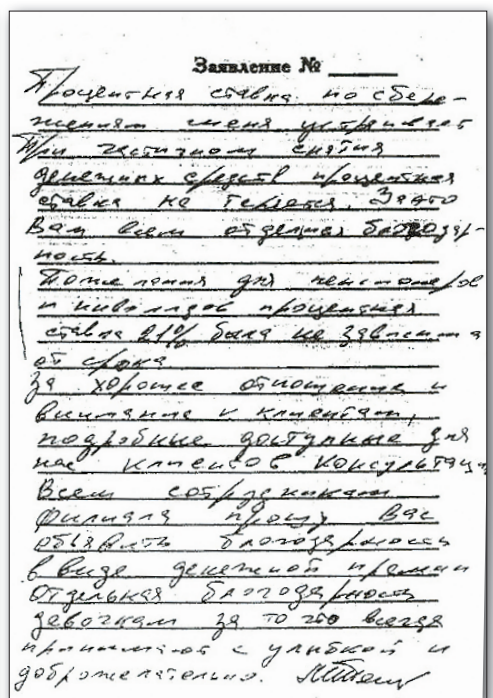 Заявление № ______
Процентная ставка по сбере-
жениям меня устраивает
При частичном снятия
денежных средств процентная
ставка не теряется. За это
Вам всем отдельная благодар-
ность.
Пожелания для пенсионеров
и инвалидов процентная
ставка 21% была не зависима
от срока
За хорошее отношение и
внимание к клиентам,
подробные доступные для
нас клиенсов консультации
Всем сотрудникам
филиала прошу Вас
объявить благодарность
в виде денежной премии
Отдельная благодарность
девочкам за то что всегда
принимают с улыбкой и
доброжелательно.